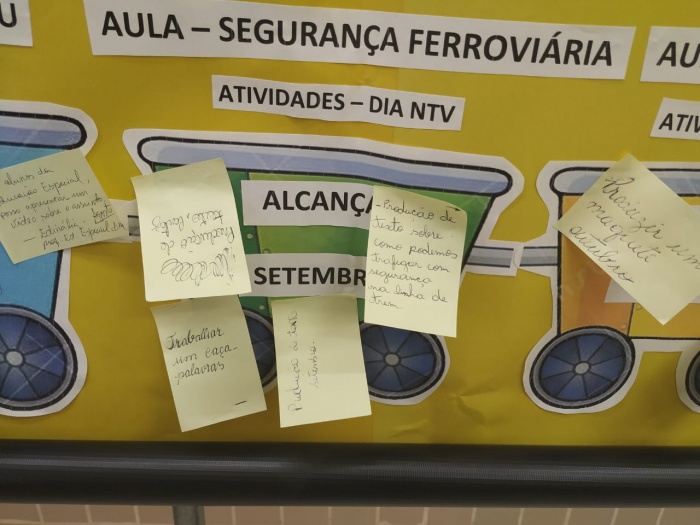 U
AULA – SEGURANÇA FERROVIÁRIA
AU
ATIVIDADES – DIA NTV
ATIV
alunos da
Educação Especial,
vamos apresentar um
vídeo sobre o assunto
Prof Ed Especial
Produção de
texto,
ALCANÇA
SETEMBR
- Produção de
texto sobre
como podemos
trafegar com
segurança
na linha de
trem
Trabalhar
um caça-
palavras
Produção de text
setembro.
Produzir um
maquete